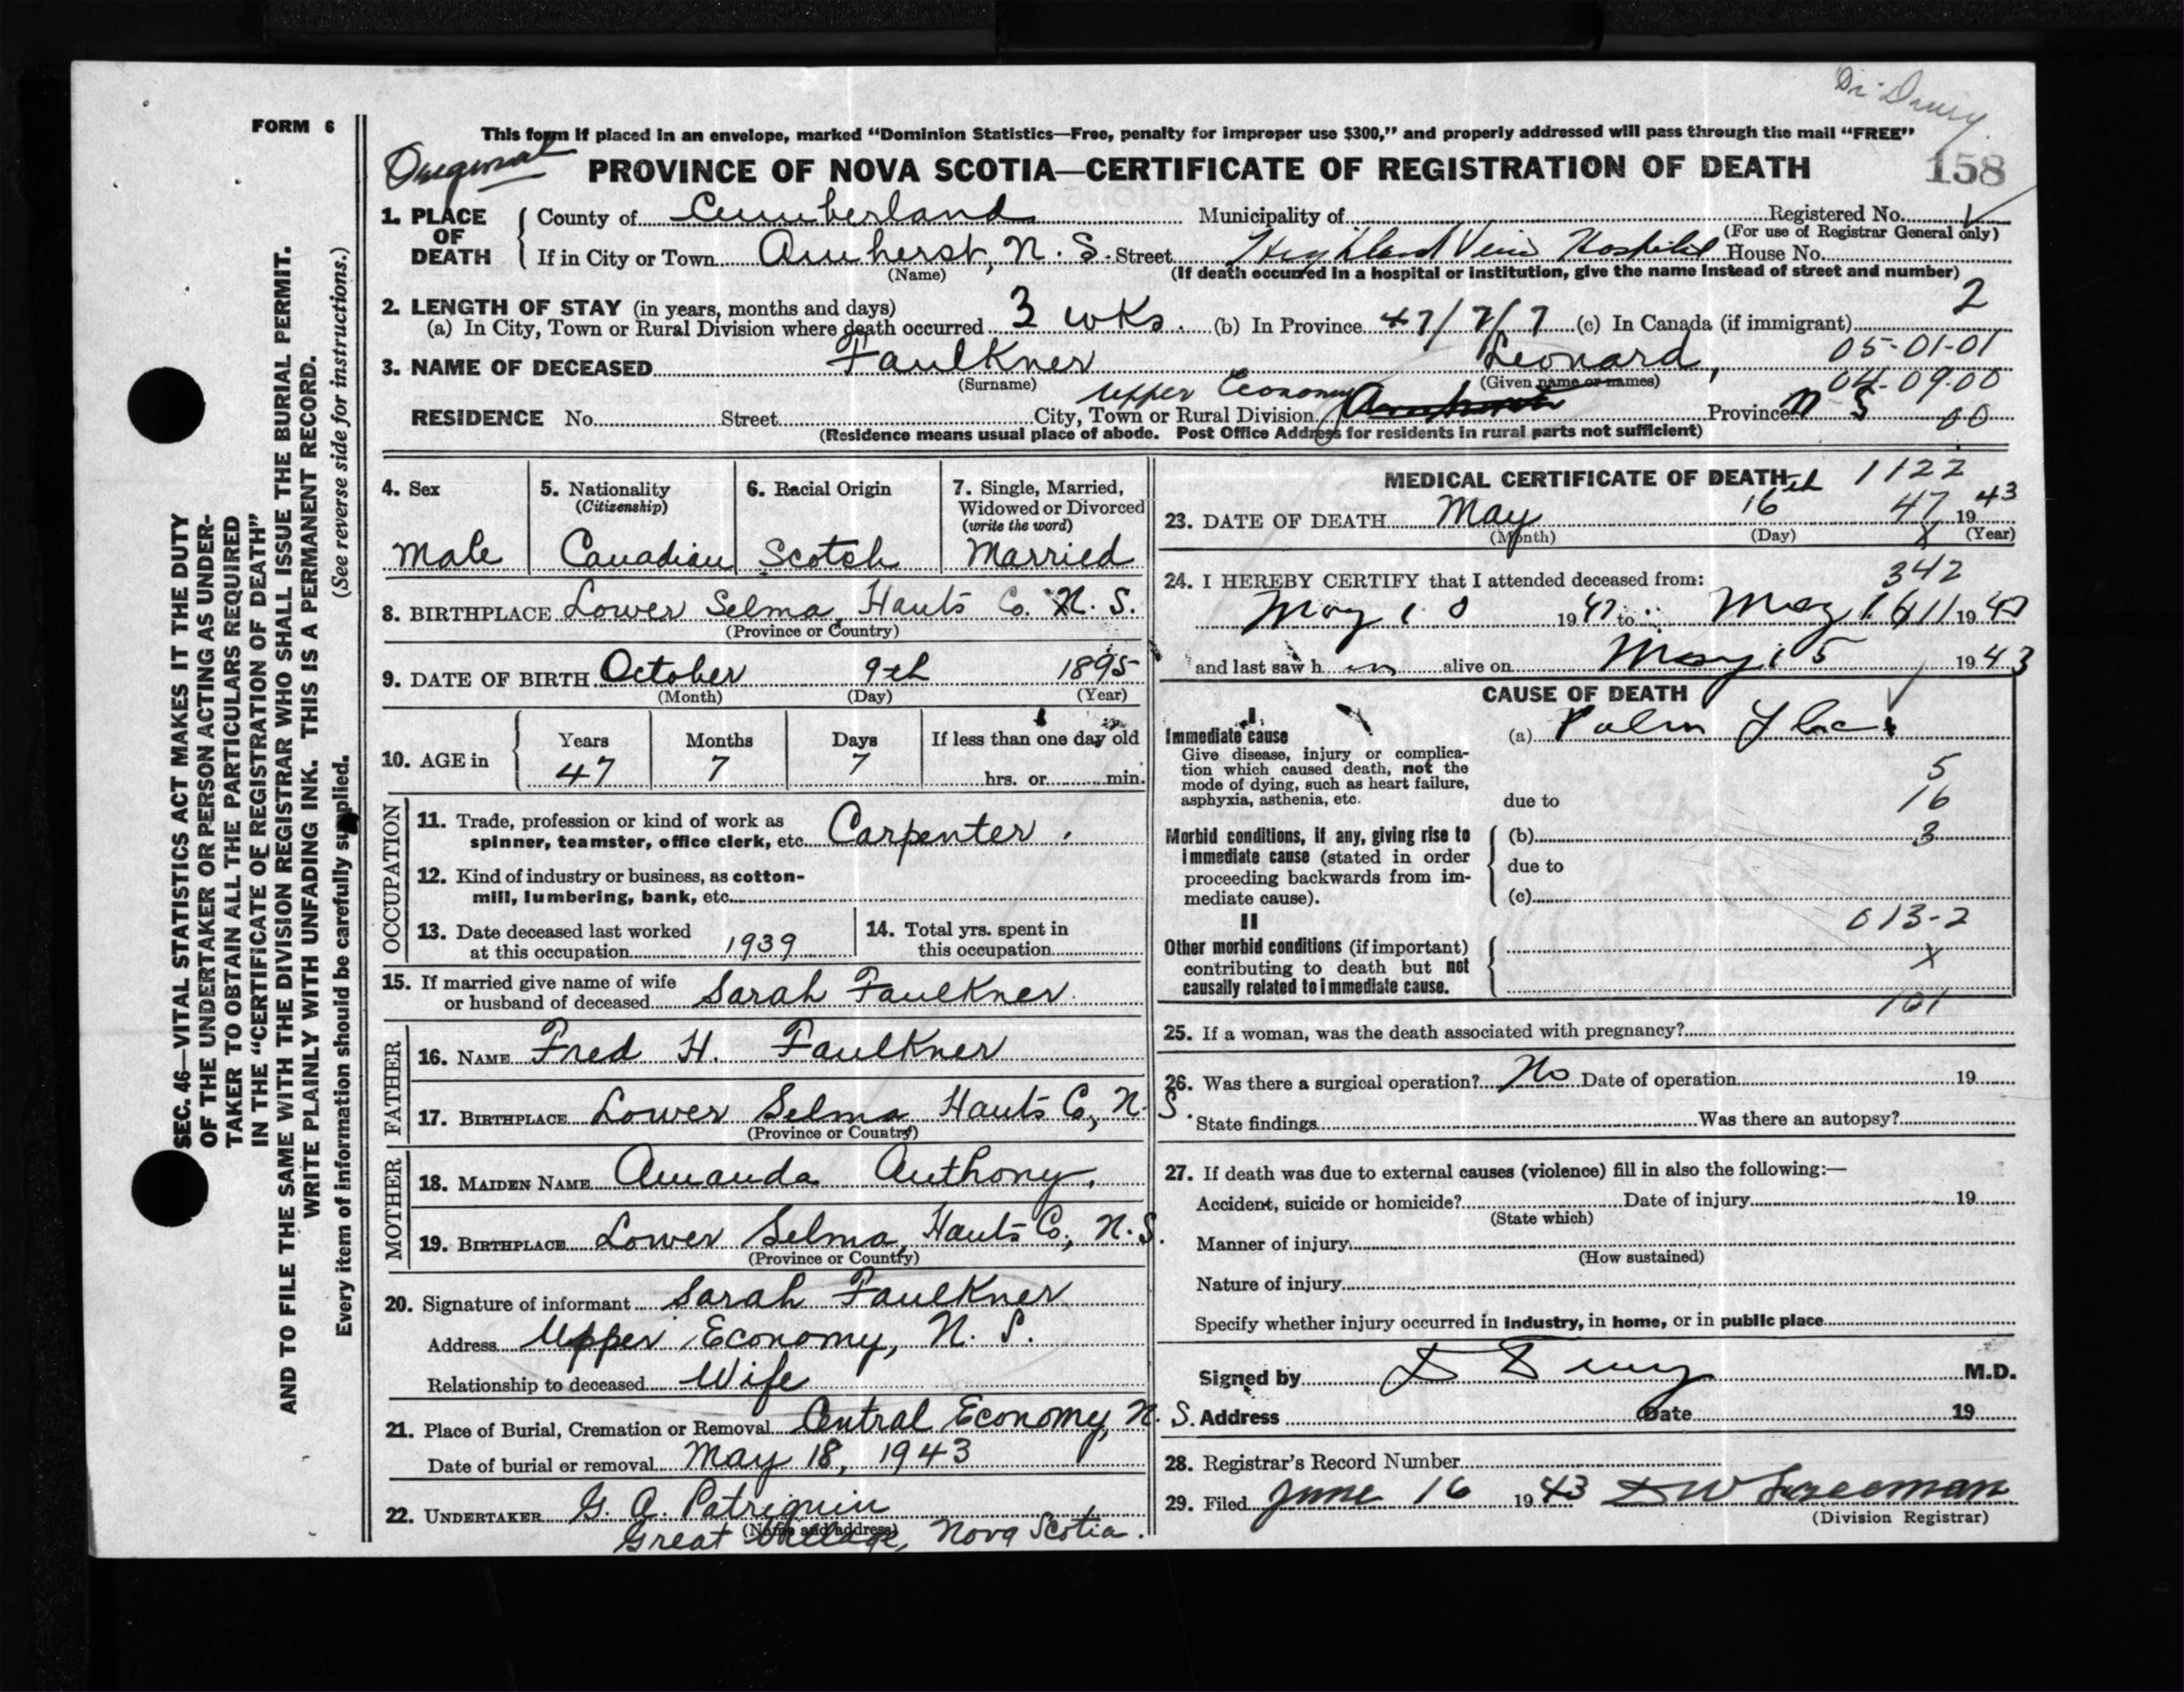 Dr. Drury
FORM 6
This form if placed in an envelope, marked “Dominion Statistics—Free, penalty for improper use $300,” and properly addressed will pass through the mail “FREE”
Original
PROVINCE OF NOVA SCOTIA—CERTIFICATE OF REGISTRATION OF DEATH
158
1. PLACE OF DEATH
County of Cumberland Municipality of Registered No.
(For use of Registrar General only)
If in City or Town Amherst, N. S. Street Highland View Hospital House No.
(Name) (If death occurred in a hospital or institution, give the name instead of street and number)
2
2. LENGTH OF STAY (in years, months and days)
(a) In City, Town or Rural Division where death occurred 3 wks. (b) In Province 47/7/7 (c) In Canada (if immigrant)
05-01-01
3. NAME OF DECEASED Faulkner Leonard,
(Surname) (Given name or names)
04-09-00
Upper Economy
RESIDENCE No. Street City, Town or Rural Division Province N S
00
(Residence means usual place of abode. Post Office Address for residents in rural parts not sufficient)
4. Sex
Male
5. Nationality
(Citizenship)
Canadian
6. Racial Origin
Scotch
7. Single, Married,
Widowed or Divorced
(write the word)
Married
8. BIRTHPLACE Lower Selma, Hants Co. N. S.
(Province or Country)
9. DATE OF BIRTH October 9th 1895
(Month) (Day) (Year)
10. AGE in
Years Months Days If less than one day old
47 7 7 hrs. or min.
OCCUPATION
11. Trade, profession or kind of work as
spinner, teamster, office clerk, etc. Carpenter.
12. Kind of industry or business, as cotton-
mill, lumbering, bank, etc.
13. Date deceased last worked
at this occupation 1939
14. Total yrs. spent in
this occupation
15. If married give name of wife
or husband of deceased Sarah Faulkner.
FATHER
16. NAME Fred H. Faulkner
17. BIRTHPLACE Lower Selma Hants Co, N. S.
(Province or Country)
MOTHER
18. MAIDEN NAME Amanda Anthony.
19. BIRTHPLACE Lower Selma, Hants Co., N. S.
(Province or Country)
20. Signature of informant Sarah Faulkner
Address Upper Economy, N. S.
Relationship to deceased Wife
21. Place of Burial, Cremation or Removal Central Economy, N. S.
Date of burial or removal May 18, 1943
22. UNDERTAKER G. A. Patriquin
(Name and address)
Great Village, Nova Scotia.
MEDICAL CERTIFICATE OF DEATH
1122
23. DATE OF DEATH May 16th 47 19 43
(Month) (Day) X (Year)
24. I HEREBY CERTIFY that I attended deceased from:
342
May 10 19 to May 16 19
and last saw h im alive on May 15 1943
CAUSE OF DEATH
I
Immediate cause
Give disease, injury or complica-
tion which caused death, not the
mode of dying, such as heart failure,
asphyxia, asthenia, etc.
(a) Pulm Tbc
5
due to
16
Morbid conditions, if any, giving rise to
immediate cause (stated in order
proceeding backwards from im-
mediate cause).
(b) 3
due to
(c)
013-2
II
Other morbid conditions (if important)
contributing to death but not
causally related to immediate cause.
X
101
25. If a woman, was the death associated with pregnancy?
26. Was there a surgical operation? No Date of operation 19
State findings Was there an autopsy?
27. If death was due to external causes (violence) fill in also the following:—
Accident, suicide or homicide? Date of injury 19
(State which)
Manner of injury
(How sustained)
Nature of injury
Specify whether injury occurred in industry, in home, or in public place
Signed by D Drury M.D.
Address Date 19
28. Registrar's Record Number
29. Filed June 16 1943 Freeman
(Division Registrar)
SEC. 46—VITAL STATISTICS ACT MAKES IT THE DUTY
OF THE UNDERTAKER OR PERSON ACTING AS UNDER-
TAKER TO OBTAIN ALL THE PARTICULARS REQUIRED
IN THE “CERTIFICATE OF REGISTRATION OF DEATH”
AND TO FILE THE SAME WITH THE DIVISION REGISTRAR WHO SHALL ISSUE THE BURIAL PERMIT.
WRITE PLAINLY WITH UNFADING INK. THIS IS A PERMANENT RECORD.
Every item of information should be carefully supplied. (See reverse side for instructions.)